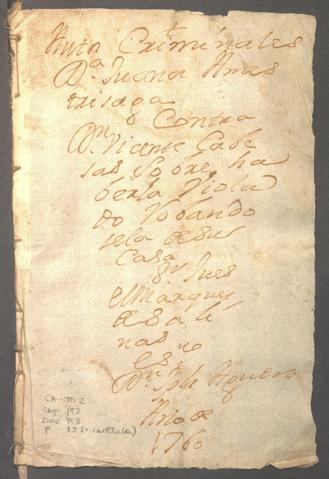 Autos Criminales
Dª Juana Ames
trisaga
Contra
Dn Vicente Gabe
sas Sobre ha
berla Viola
do Robando
sela de su
Casa
Sr Jues
el Marques
de Sali
nas
Es no
Dn Agüero
Año de
1760
CA-JO2
Caj 192
Doc 83
f 12 (+ carátula)